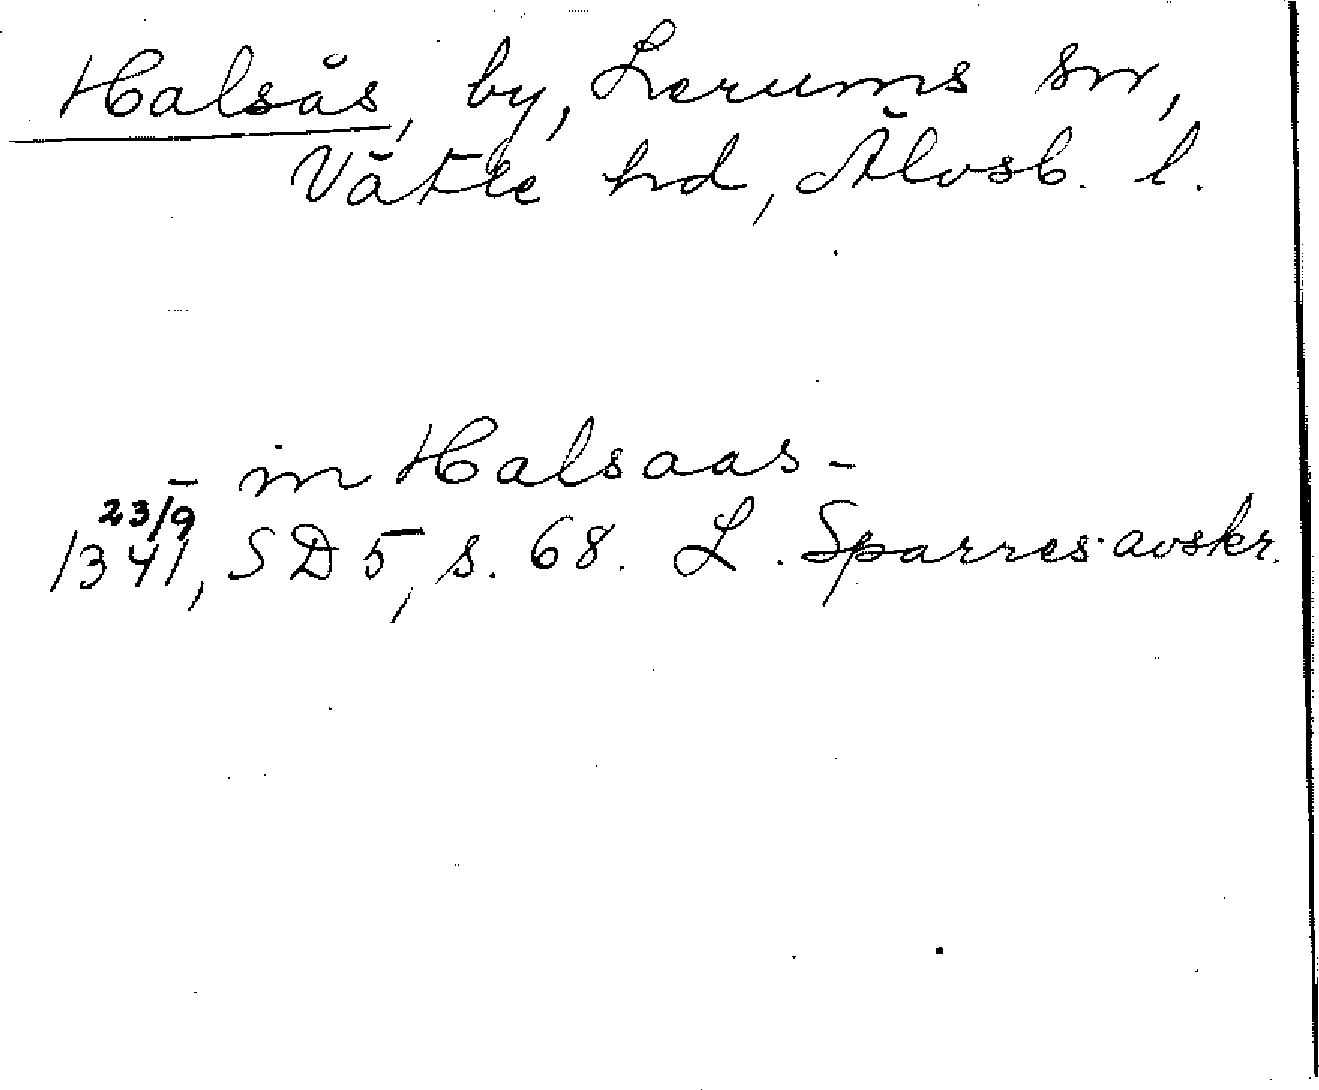 Halsås, by, Lerums sn,
Vätle hd, Älvsb. l.
- in Halsaas -
23/9
1341, SD 5, s. 68. L. Sparres avskr.